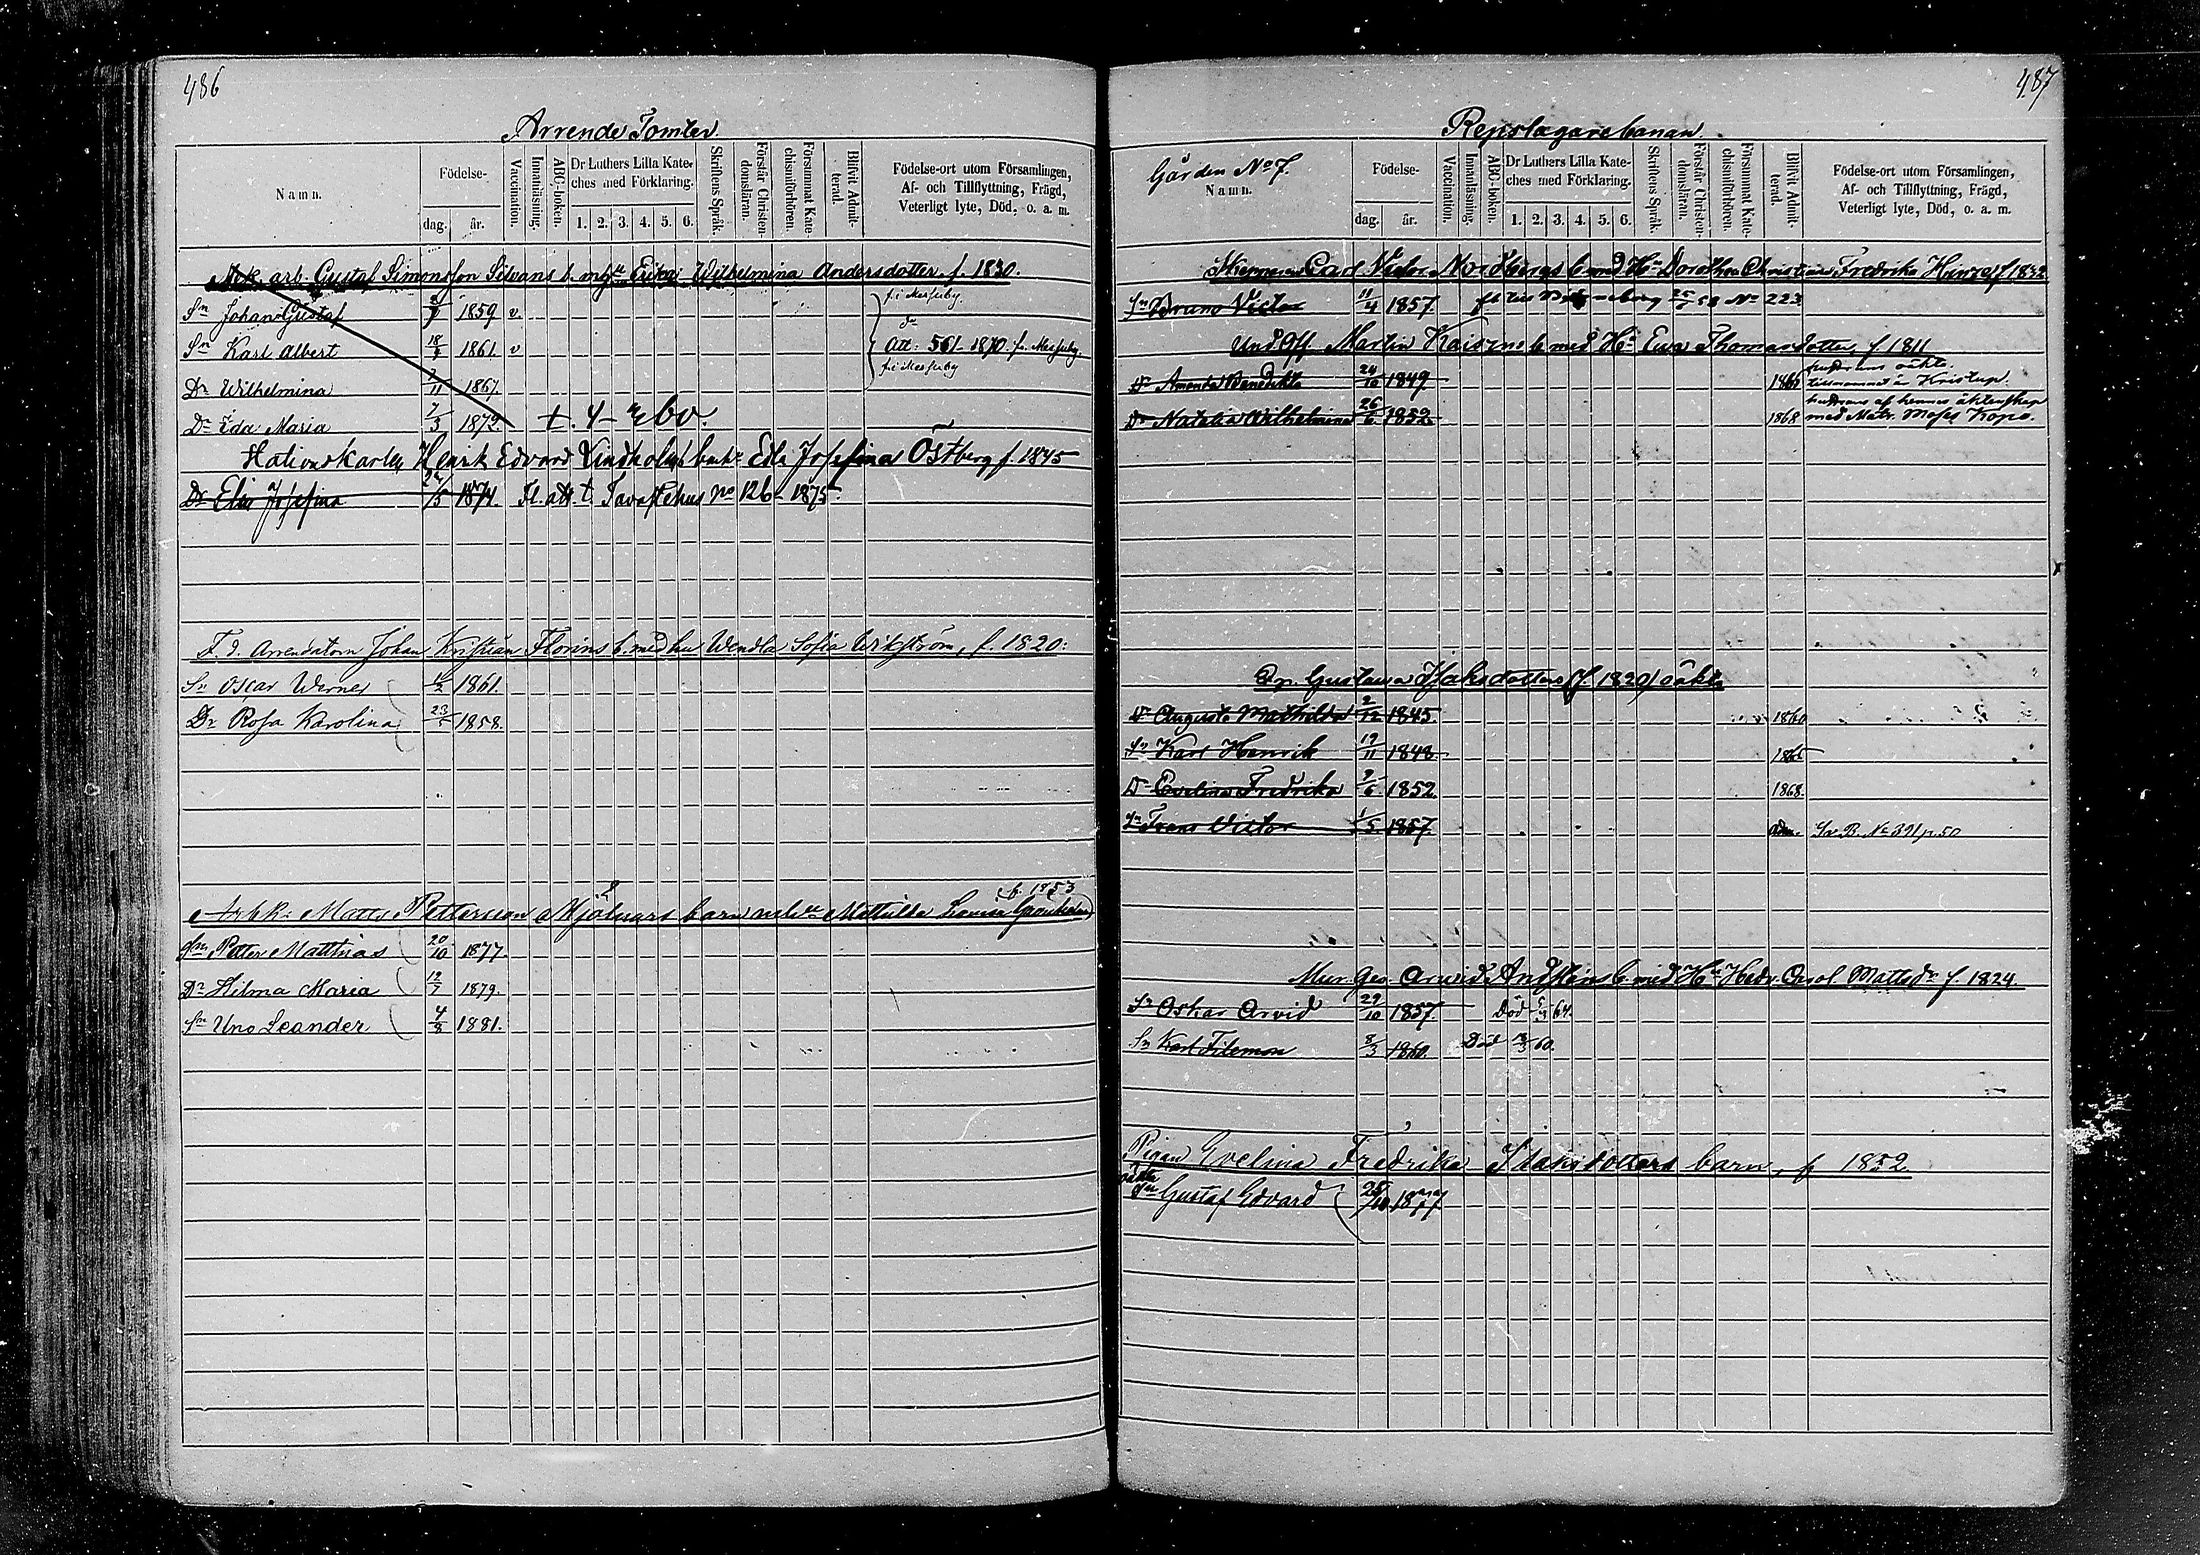 486
Arrende Tomter.
Namn.
Födelse-
dag.
år.
Vaccination.
Innanläsning.
ABC-boken.
Dr Luthers Lilla Kate-
ches med Förklaring.
1. 2. 3. 4. 5. 6.
Skriftens Språk.
Förstår Christen-
domsläran.
Försummat Kate-
chismiförhören.
Blifvit Admit-
terad.
Födelse-ort utom Församlingen,
Af- och Tillflyttning, Frägd,
Veterligt lyte, Död, o. a. m.
arb. Gustaf Simonsson b. m. Erika Wilhelmina Andersdotter f. 1830.
Sn Johan Gustaf 1859 v.
Sn Karl Albert 18 1861. v Att: 561 1870 f.
Dr Wilhelmina 11 1867.
Dr Eda Maria 7/3 1872.
Henrik Edvard Lindholms Josefina Östberg f. 1845
Dr Josefina 1874. Fl. att. t. Tavastehus No 126 1875.
F. d. Arrendatorn Johan Kristian Florins b. med hu Wendla Sofia Wikström, f. 1820:
Sn Oscar Werner 1861.
Dr Rosa Karolina 23/5 1858.
f. 1853
Arbk: Matts Pettersson Mjölnars barn Mathilda Lovisa
Sn Petter Matthias 20/10 1877.
Dr Hilma Maria 12/7 1879.
Sn Uno Leander 4/8 1881.
487
Repslagarebanan.
Gården No 7.
Namn.
Födelse-
dag.
år.
Vaccination.
Innanläsning.
ABC-boken.
Dr Luthers Lilla Kate-
ches med Förklaring.
1. 2. 3. 4. 5. 6.
Skriftens Språk.
Förstår Christen-
domsläran.
Försummat Kate-
chismiförhören.
Blifvit Admit-
terad.
Födelse-ort utom Församlingen,
Af- och Tillflyttning, Frägd,
Veterligt lyte, Död, o. a. m.
Carl Victor Nordbergs b. med Hu Dorothea Christina Fredrika f. 1832
Sn Bruno Victor 11/4 1857. No 223
Und Off Martin b med Hu Ewa Thomasdotter, f 1811
Dr Amanda Benedikta 24/10 1849 tillnamnet är
Dr Natalia Wilhelmina 26/6 1852 1868 med
Gustava Isaksdotters (f. 1820) oäkta
Dr Augusta Mathilda 2/12 1845. 1860
Sn Karl Henrik 19/11 1848 1865
Dr Evelina Fredrika 9/6 1852 1868.
Sn Frans Victor 1/5 1857 adm. B. No 391 p. 50
Mur. Ges. Arvid b med Hu Hedv. Carol. Mattsdr f. 1824.
Sn Oskar Arvid 29/10 1857 Död 64.
Sn Karl Filemon 8/3 1860. Död 60.
Pigan Evelina Fredrika Isaksdotters barn, f 1852
oäkta
Sn Gustaf Edvard 1877